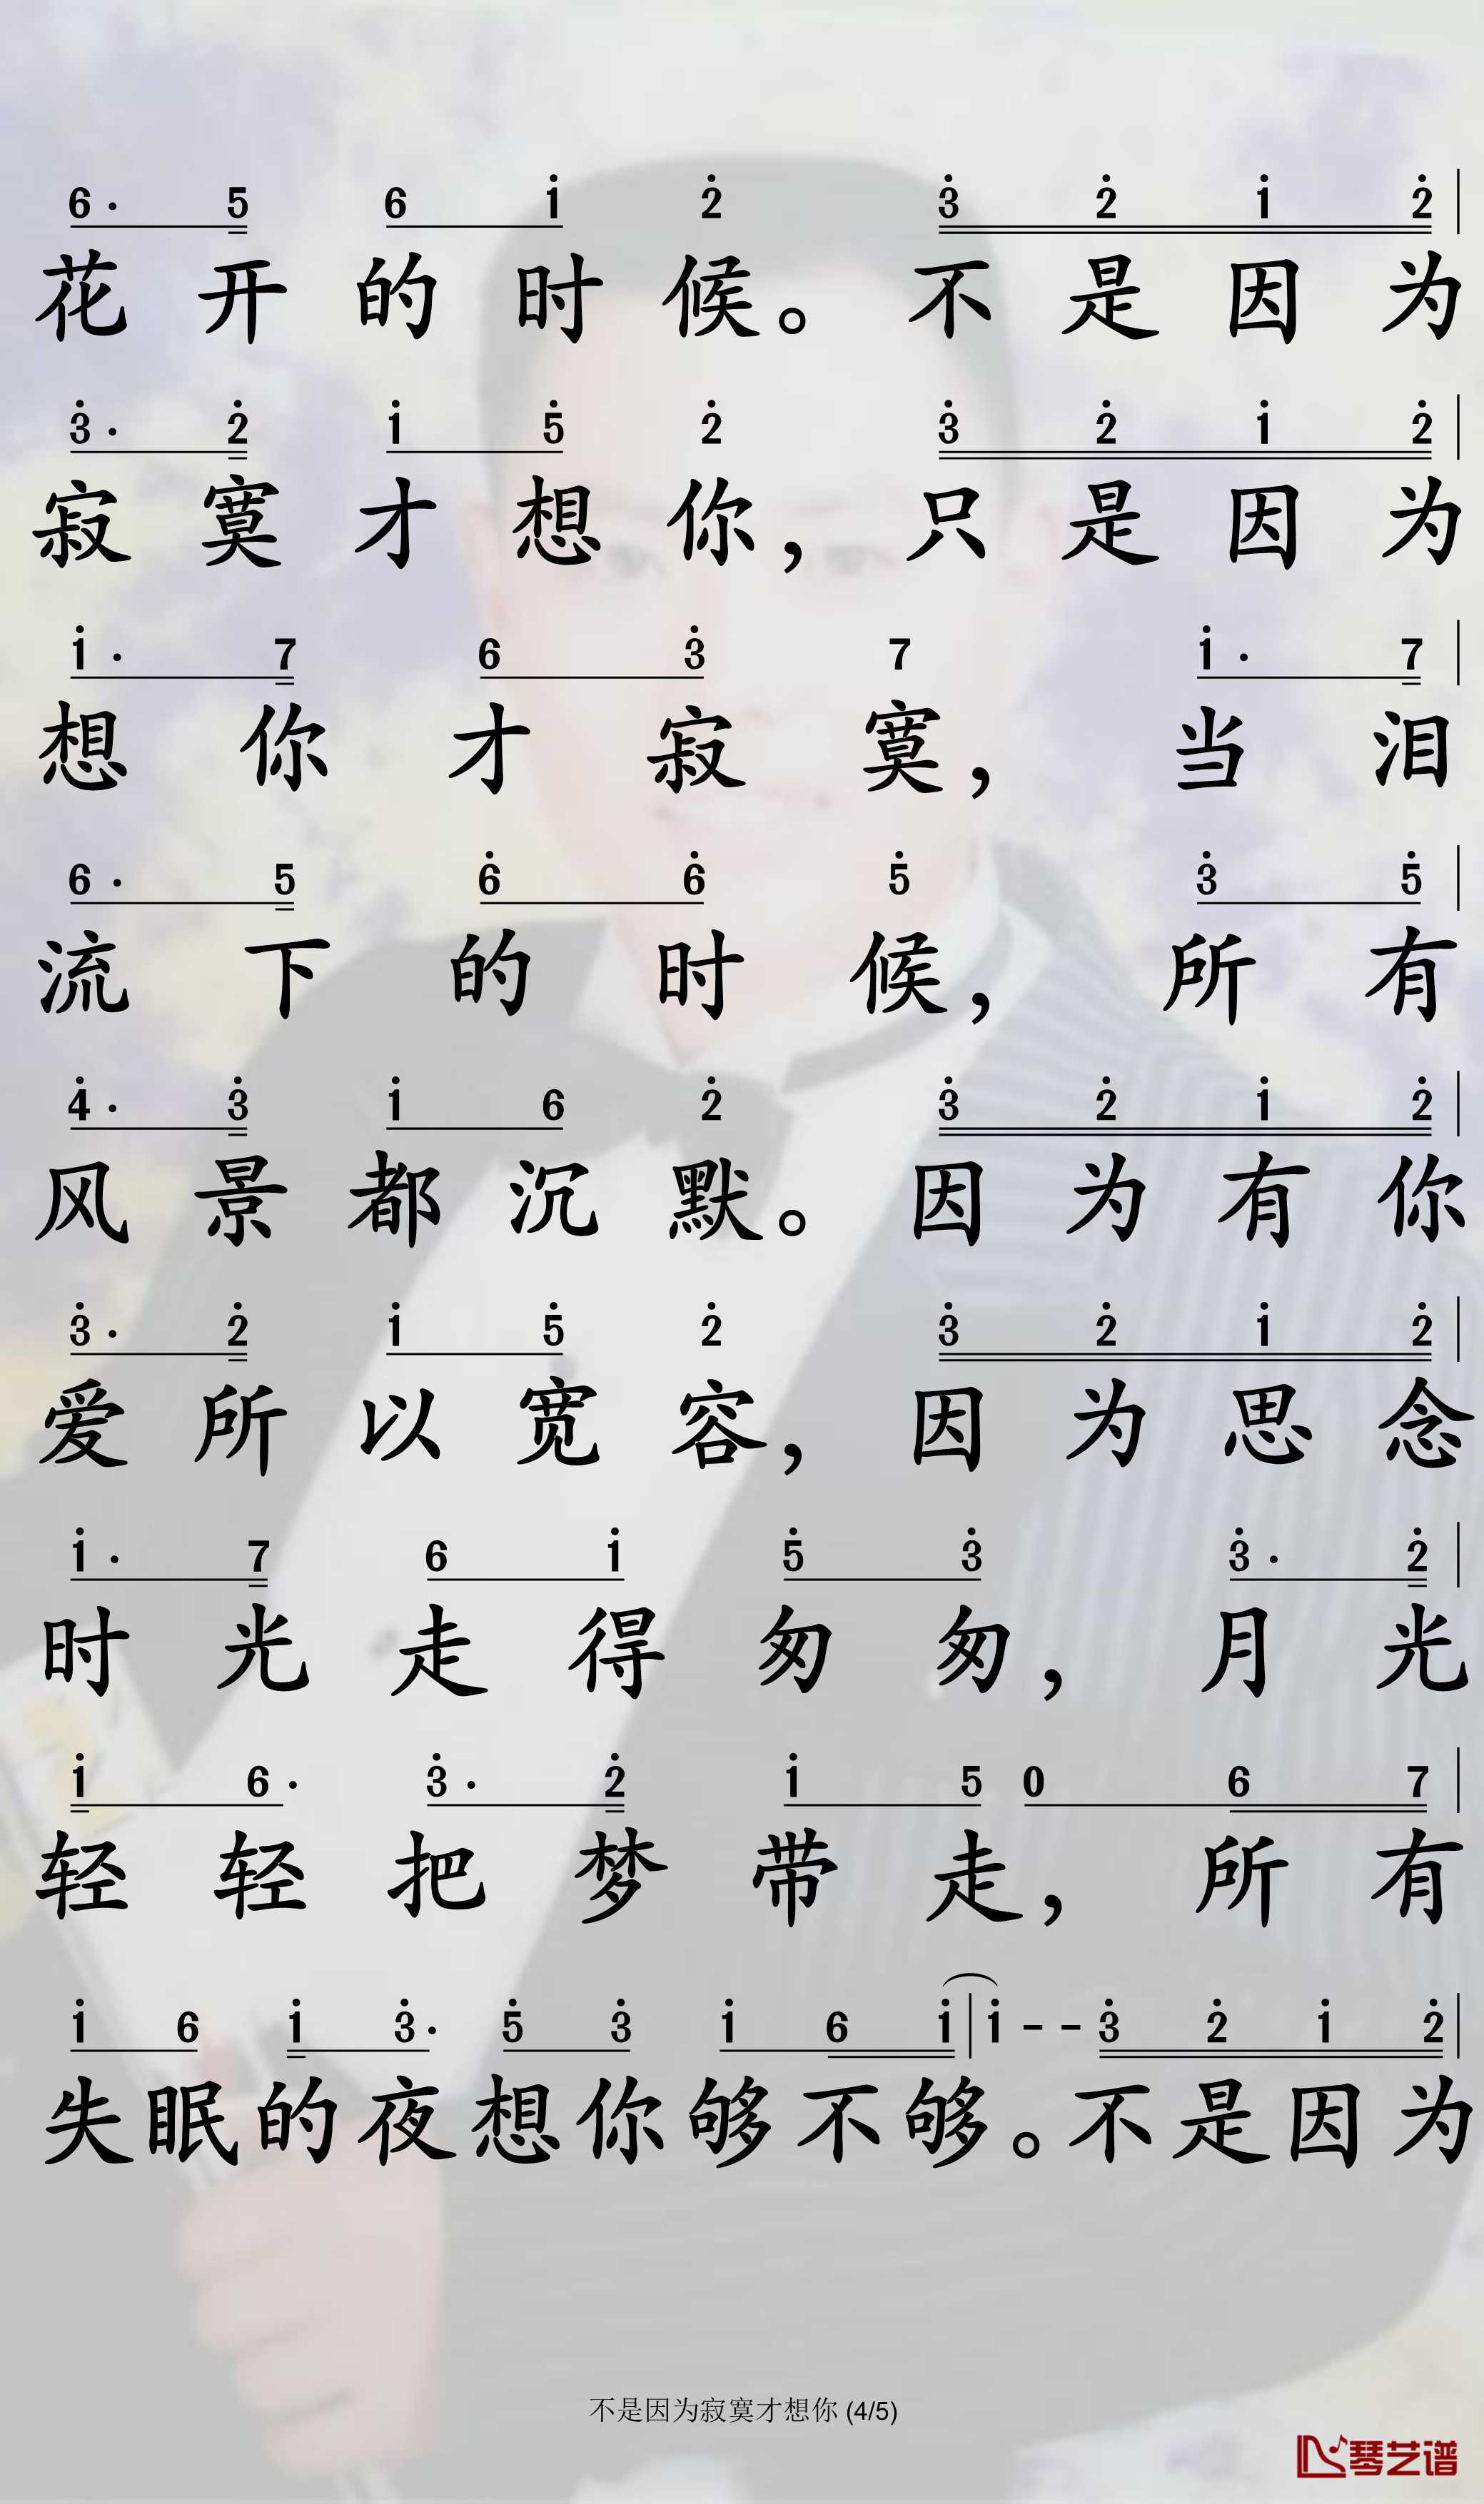 6· 5 6 1̇ 2̇ 3̇ 2̇ 1̇ 2̇ |
花开的时候。不是因为
3̇· 2̇ 1̇ 5̇ 2̇ 3̇ 2̇ 1̇ 2̇ |
寂寞才想你，只是因为
1̇· 7 6 3̇ 7 1̇· 7 |
想你才寂寞，当泪
6· 5 6̇ 6̇ 5̇ 3̇ 5̇ |
流下的时候，所有
4̇· 3̇ 1̇ 6 2̇ 3̇ 2̇ 1̇ 2̇ |
风景都沉默。因为有你
3̇· 2̇ 1̇ 5̇ 2̇ 3̇ 2̇ 1̇ 2̇ |
爱所以宽容，因为思念
1̇· 7 6 1̇ 5̇ 3̇ 3̇· 2̇ |
时光走得匆匆，月光
1̇ 6· 3̇· 2̇ 1̇ 5 0 6 7 |
轻轻把梦带走，所有
1̇ 6 1̇ 3̇· 5̇ 3̇ 1̇ 6 1̇ | 1̇ - - 3̇ 2̇ 1̇ 2̇ |
失眠的夜想你够不够。不是因为
不是因为寂寞才想你 (4/5)
琴艺谱